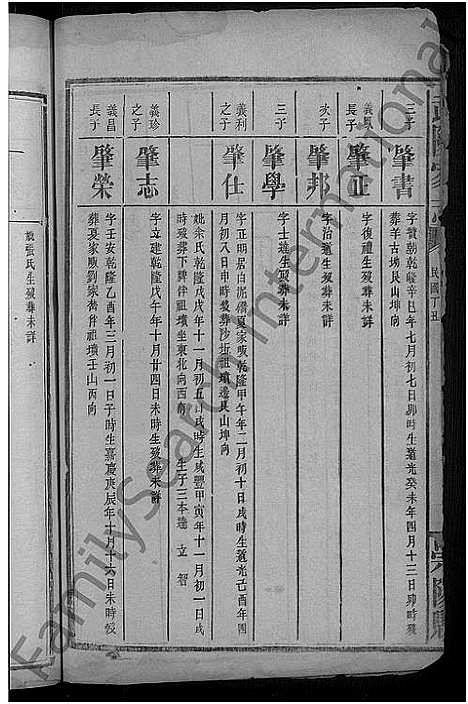 三子
肇書
字贊朝乾隆辛巳年七月初七日卯時生道光癸未年四月十三日卯時歿
葬羊古塝艮山坤向
長子
肇正
字復禮生歿葬未詳
次子
肇邦
字治道生歿葬未詳
三子
肇學
字士達生歿葬未詳
義利
之子
肇仕
字正明居白泥嶺夏家陂乾隆甲午年二月初十日戌時生道光己酉年四
月初八日申時歿葬沙坵祖墳邊艮山坤向
妣余氏乾隆戊戌年十一月初五日戌時生咸豐甲寅年十一月初一日戌
時歿葬下牌伴祖墳坐東北向西南
生子三本達 立 智
義珍
之子
肇志
字立建乾隆戊午年十月廿四日未時生歿葬未詳
義昌
長子
肇榮
字壬安乾隆乙酉年三月初一日子時生嘉慶庚辰年十月十六日未時歿
葬夏家陂劉家嵛伴祖墳壬山丙向
張氏生歿葬未詳
民國丁丑
FamilySearch International